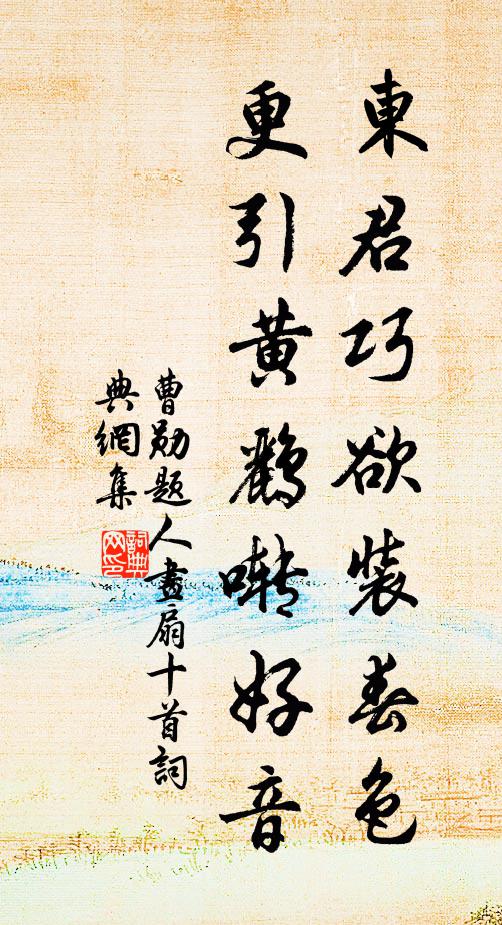 東君巧欲裝春色
更引黄鸝囀好音
曹勛題人畫扇十首詞
典網集
詞典
网印